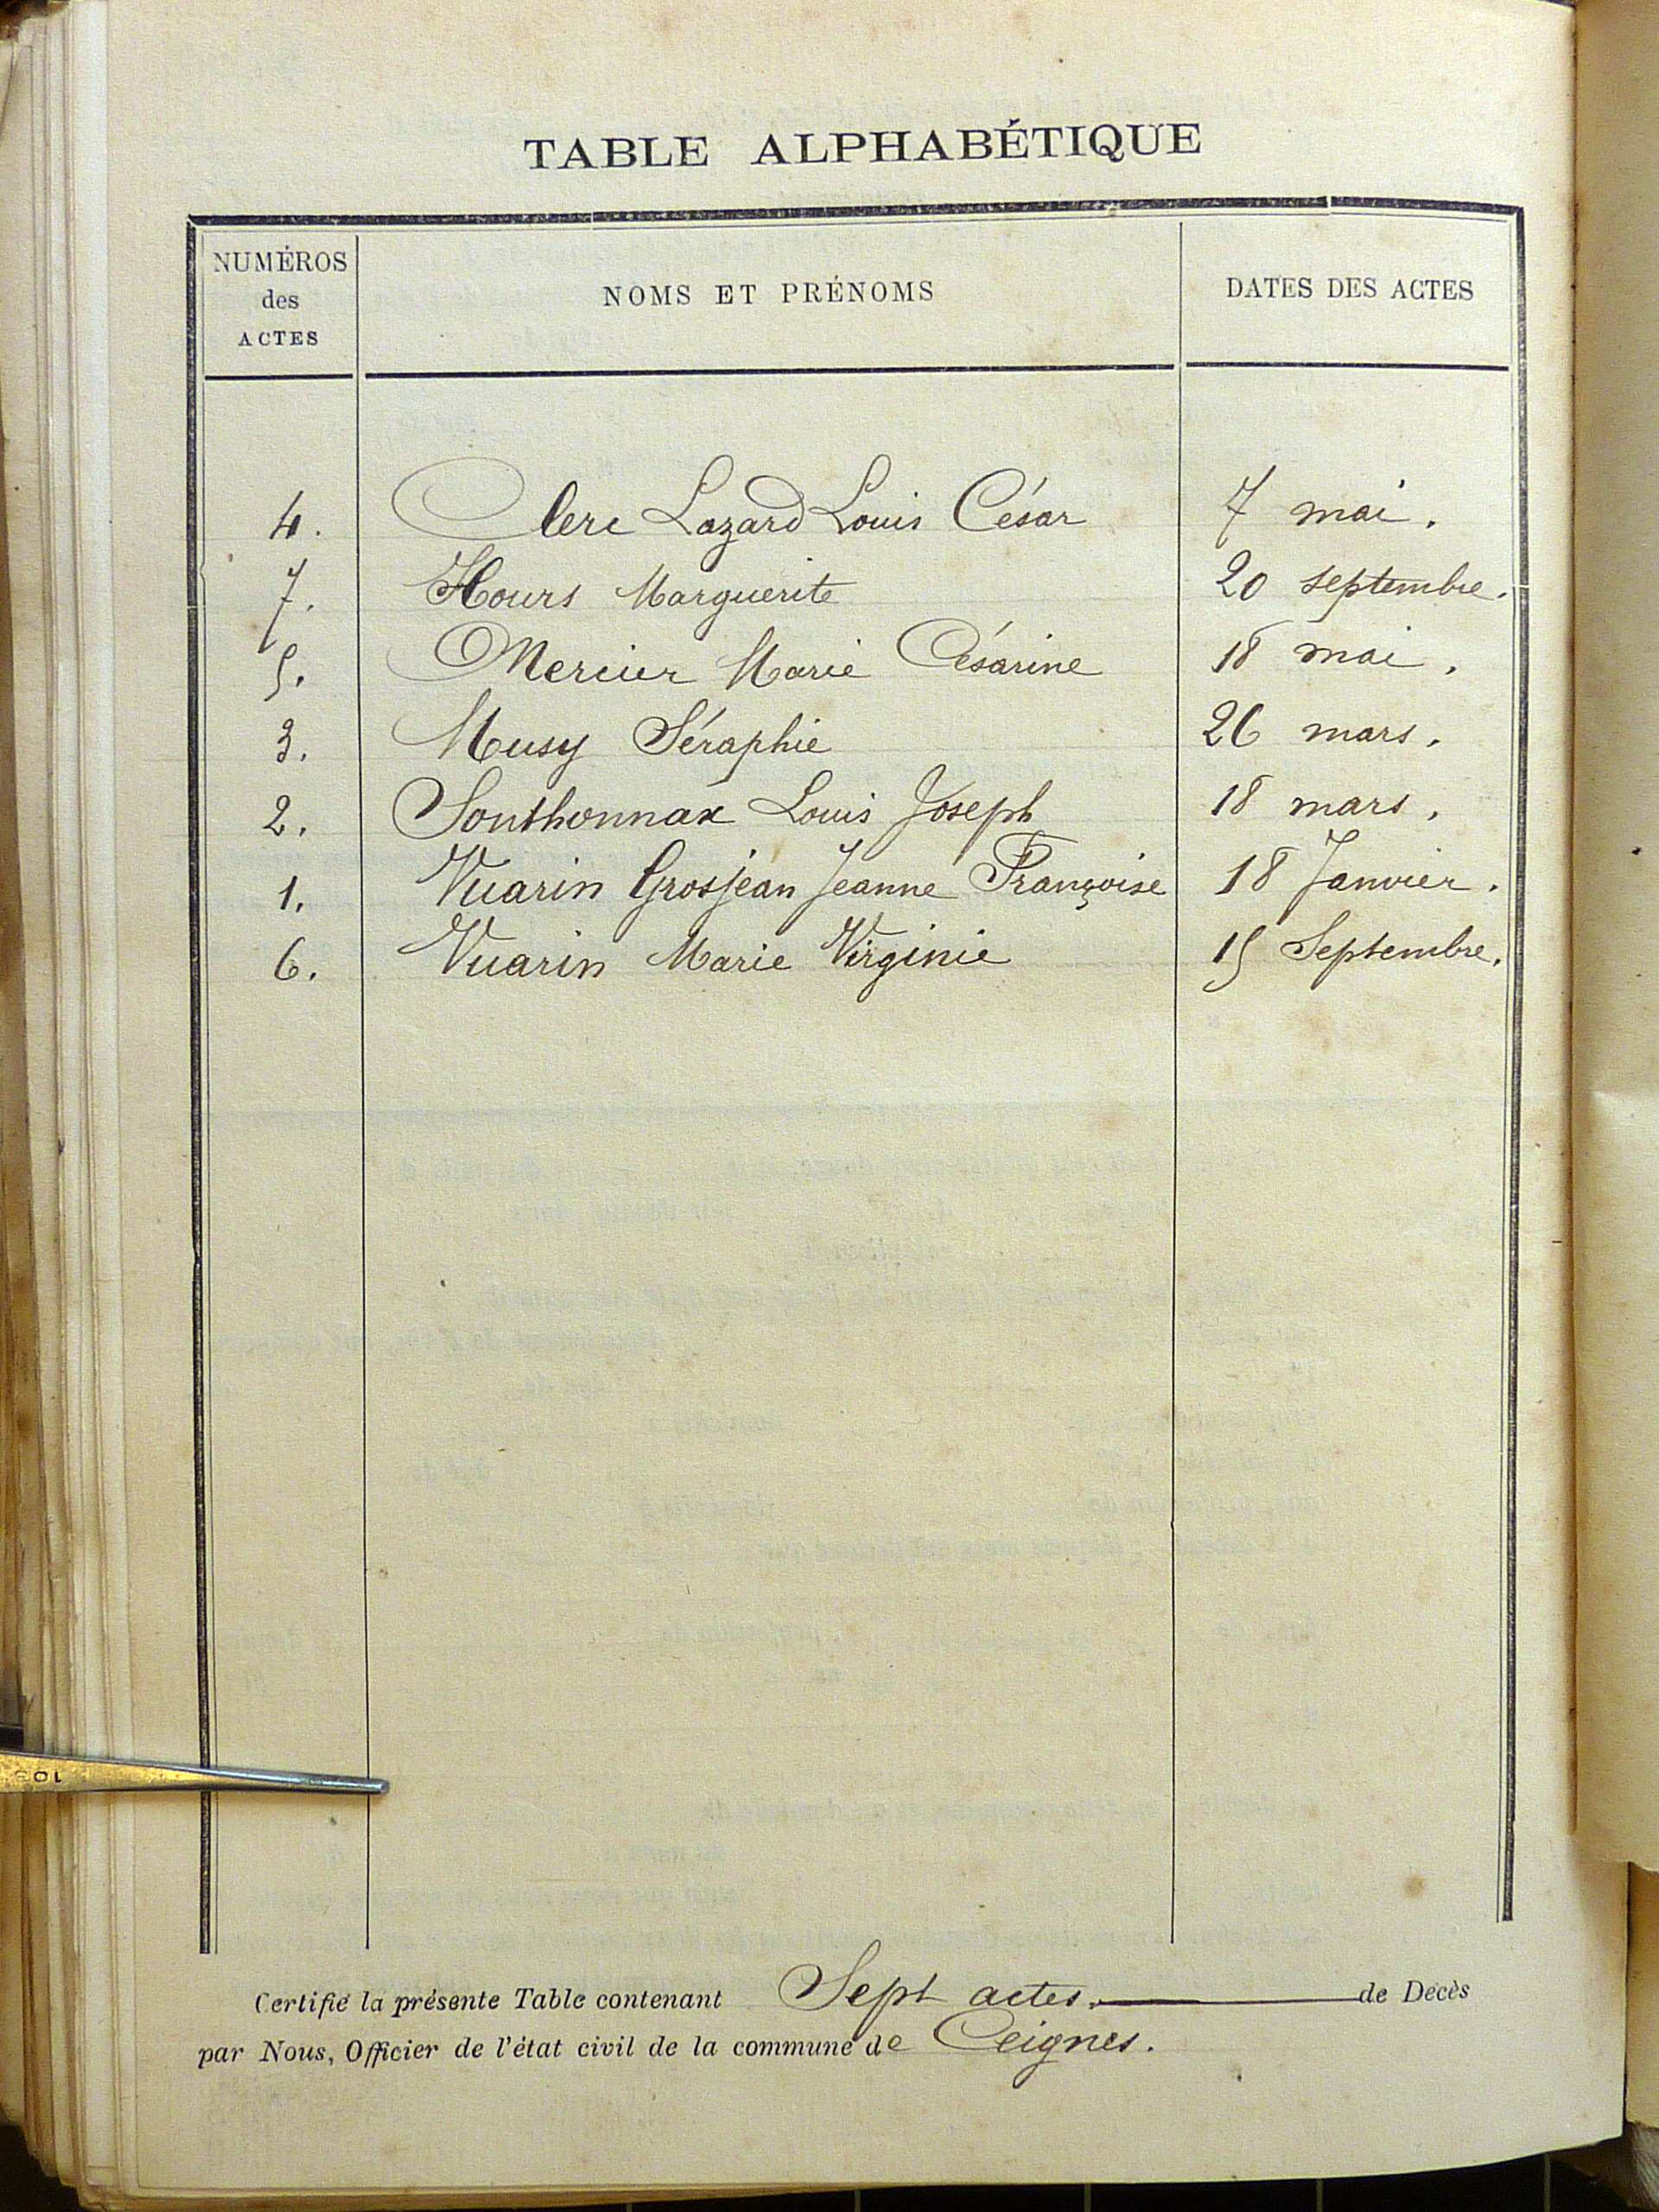 TABLE ALPHABÉTIQUE
NUMÉROS des ACTES NOMS ET PRÉNOMS DATES DES ACTES
4. Clerc Lazard Louis César 7 mai.
7. Hours Marguerite 20 septembre.
5. Mercier Marie Césarine 18 mai.
3. Musy Séraphie 26 mars.
2. Sonthonnax Louis Joseph 18 mars.
1. Vuarin Grosjean Jeanne Françoise 18 Janvier.
6. Vuarin Marie Virginie 15 Septembre.
Certifié la présente Table contenant Sept actes. de Décès
par Nous, Officier de l'état civil de la commune de Ceignes.